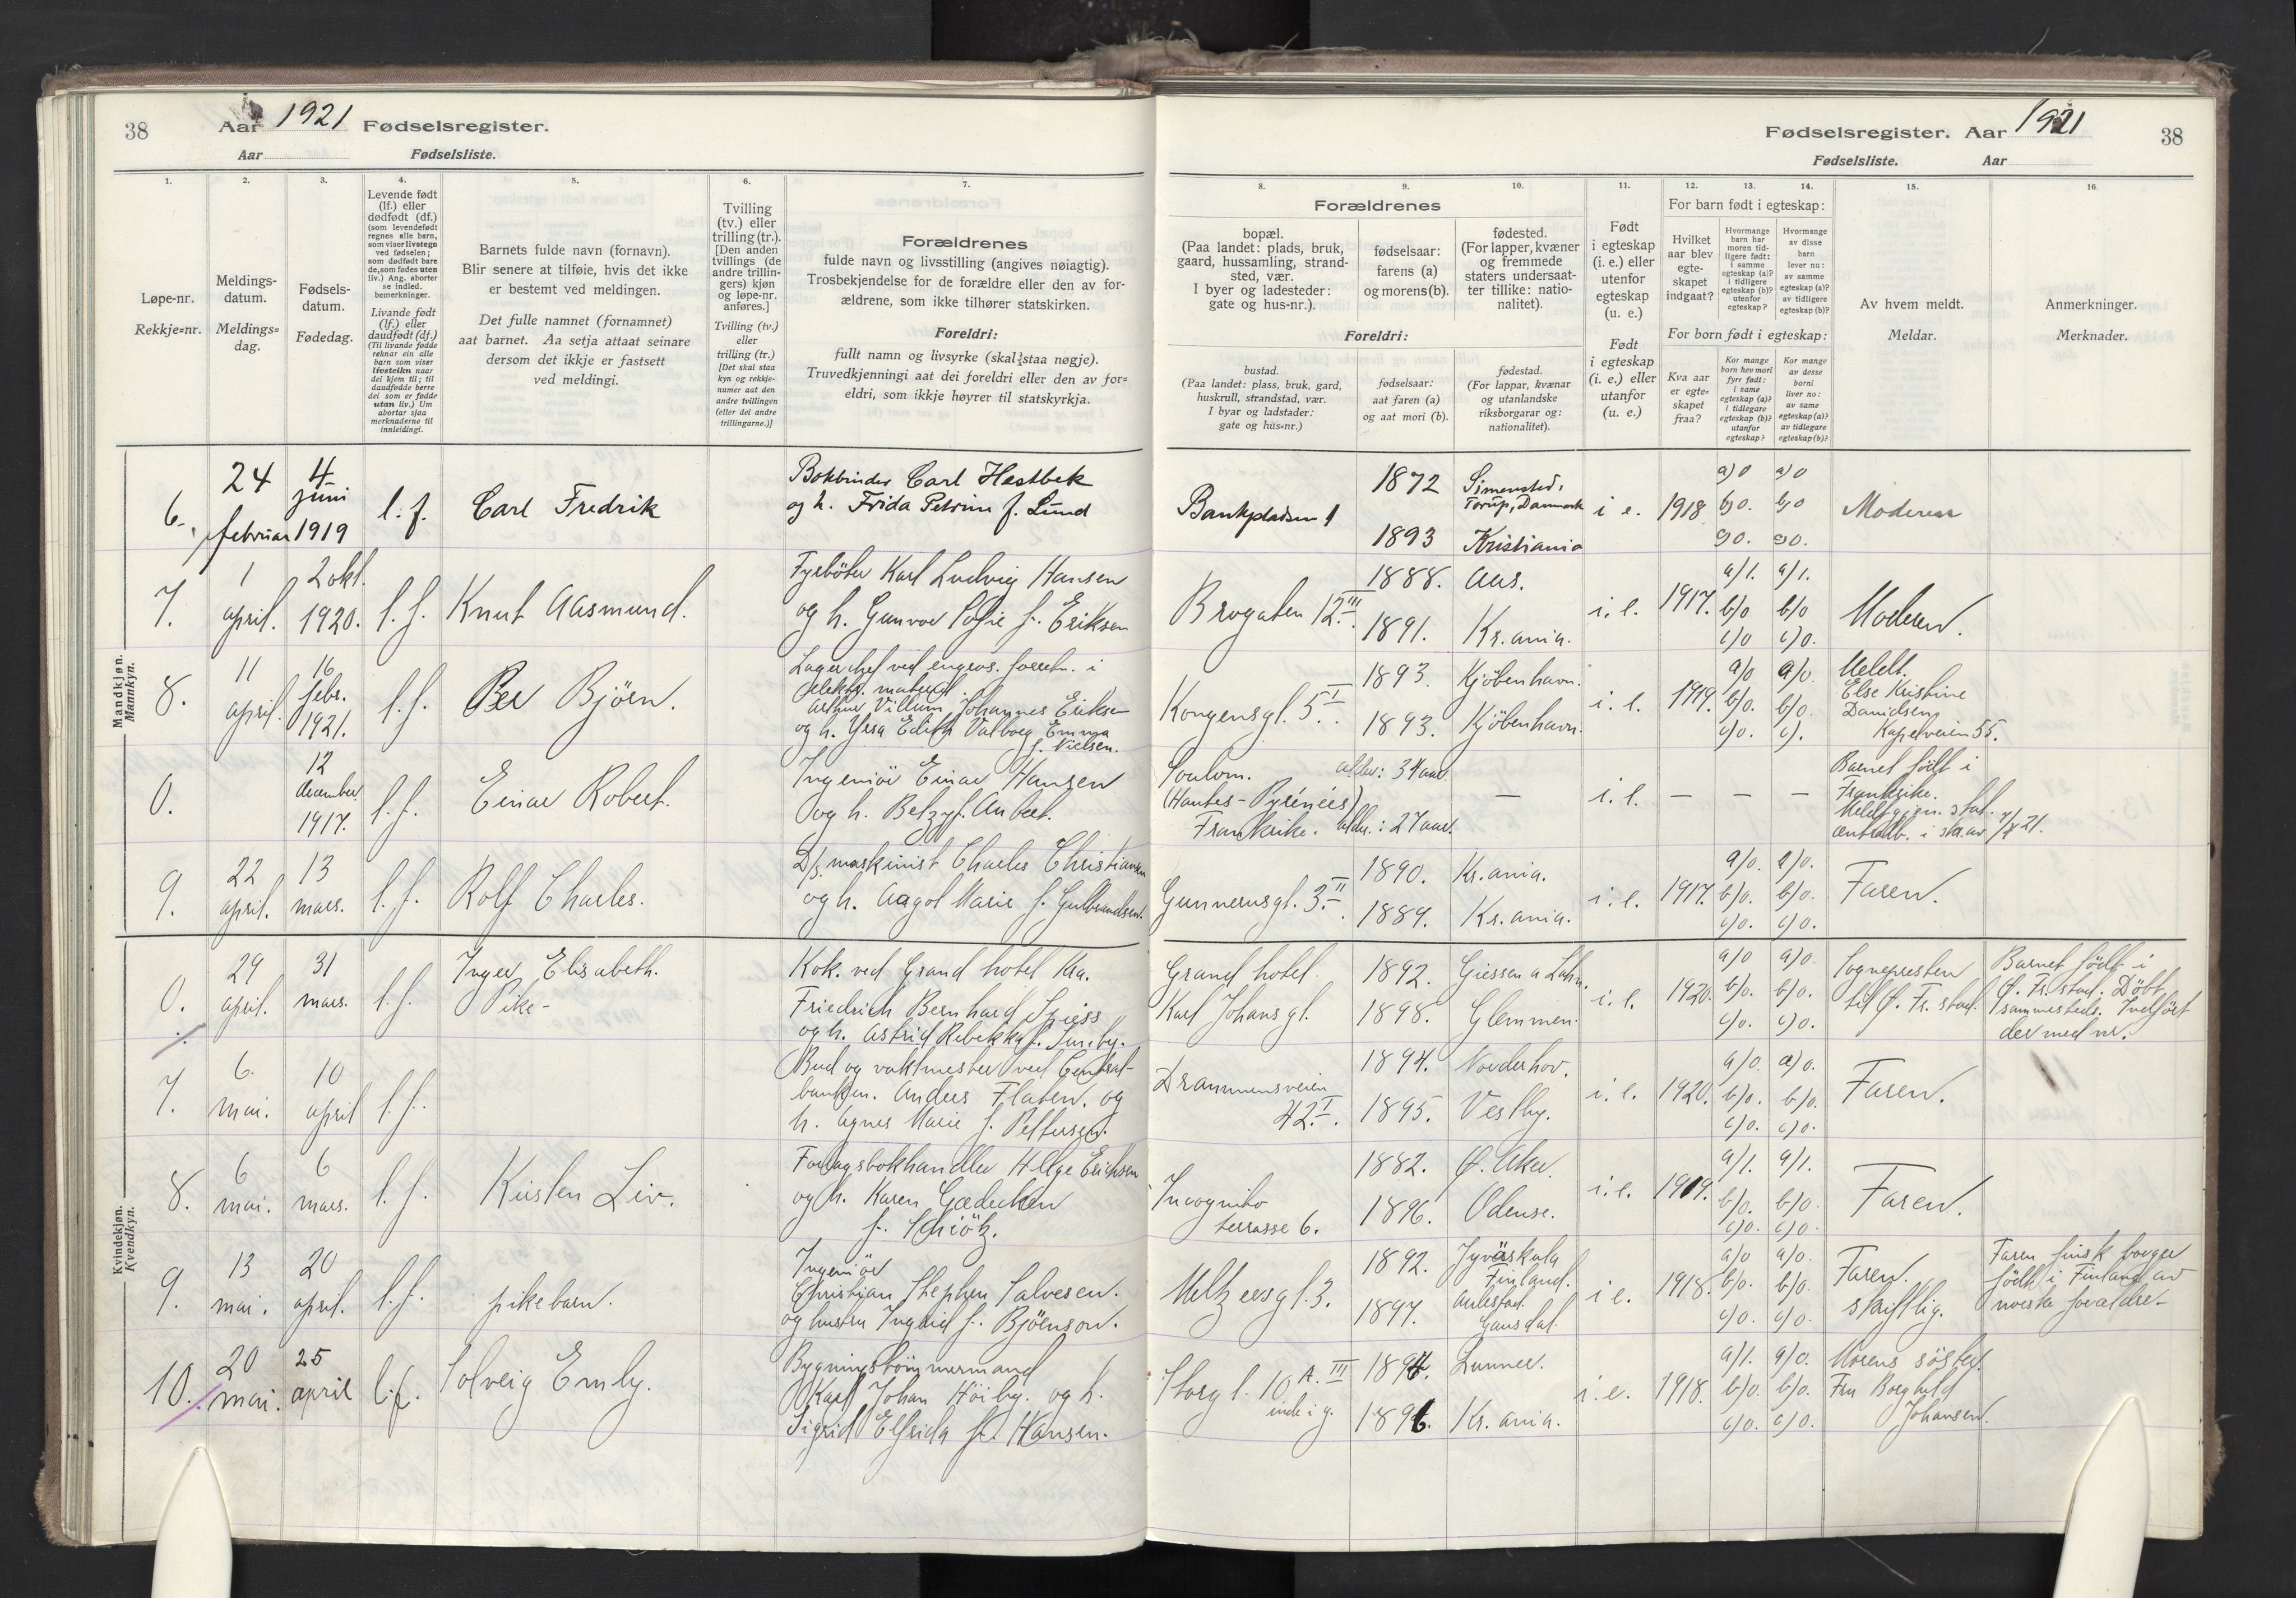 38
Aar 1921 Fødselsregister.
Aar Fødselsliste.
1.
Løpe-nr.
Rekkje=nr.
2.
Meldings-
datum.
Meldings=
dag.
3.
Fødsels-
datum.
Fødedag.
4.
Levende født
(lf.) eller
dødfødt (df.)
(som levendefødt
regnes alle barn,
som viser livstegn
ved fødselen;
som dødfødt bare
de, som fødes uten
liv.) Ang. aborter
se indled.
bemerkninger.
Livande født
(lf.) eller
daudfødt (df.)
(Til livande fødde
reknar ein alle
barn som viser
livsteikn naar
dei kjem til; til
daudfødde berre
dei som er fødde
utan liv.) Um
abortar sjaa
merknaderne til
innleidingi.
5.
Barnets fulde navn (fornavn).
Blir senere at tilføie, hvis det ikke
er bestemt ved meldingen.
Det fulle namnet (fornamnet)
aat barnet. Aa setja attaat seinare
dersom det ikkje er fastsett
ved meldingi.
6.
Tvilling
(tv.) eller
trilling (tr.).
[Den anden
tvillings (de
andre trillin-
gers) kjøn
og løpe-nr.
anføres.]
Tvilling (tv.)
eller
trilling (tr.)
[Det skal staa
kyn og rekkje-
numer aat den
andre tvillingen
(eller dei andre
trillingarne.)]
7.
Forældrenes
fulde navn og livsstilling (angives nøiagtig).
Trosbekjendelse for de forældre eller den av for-
ældrene, som ikke tilhører statskirken.
Foreldri:
fullt namn og livsyrke (skal staa nøgje).
Truvedkjenningi aat dei foreldri eller den av for=
eldri, som ikkje høyrer til statskyrkja.
Mandkjøn.
Mannkyn.
6. 24 februar 4 juni 1919 l. f. Carl Fredrik
Bokbinder Carl Hestbek
og h. Frida Petrine f. Lund
7. 1 april. 2 okt. 1920. l. f. Knut Aasmund.
Fyrbøter Karl Ludvig Hansen
og h. Gunvor Sofie f. Eriksen
8. 11 april. 16 febr. 1921. l. f. Per Bjørn.
Lagerchef ved engros. forretn. i
elektr. materiel.
Arthur Villum Johannes Eriksen
og h. Yrsa Edith Valborg Emma
f. Nielsen.
0. 12 december 1917. l. f. Einar Robert.
Ingeniør Einar Hansen
og h. Betzy f. Aubert.
9. 22 april. 13 mars. l. f. Rolf Charles.
D/s. maskinist Charles Christiansen
og h. Aagot Marie f. Gulbrandsen.
Kvindekjøn.
Kvendkyn.
0. 29 april. 31 mars. l. f. Inger Elisabeth.
Pike-
Kok. ved Grand hotel Kra.
Friedrich Bernhard Spiess
og h. Astrid Rebekka f.
7. 6. mai. 10 april l. f.
Bud og vaktmester ved Central-
banken. Anders Flaten. og
h. Agnes Marie f. Pettersen.
8. 6 mai. 6 mars. l. f. Kirsten Liv.
Forlagsbokhandler Helge Erichsen
og h. Karen Gædecken
f. Schiötz.
9. 13 mai. 20 april. l. f. pikebarn.
Ingeniør
Christian Stephen Salvesen.
og hustru Ingrid f. Björnson.
10. 20 mai. 25 april l. f. Solveig Emly.
Bygningstømmermand
Karl Johan Høiby. og h.
Sigrid Elfrida f. Hansen.
Fødselsregister. Aar 1921
38
Fødselsliste. Aar
Forældrenes
8.
bopæl.
(Paa landet: plads, bruk,
gaard, hussamling, strand-
sted, vær.
I byer og ladesteder:
gate og hus-nr.).
9.
fødselsaar:
farens (a)
og morens (b).
10.
fødested.
(For lapper, kvæner
og fremmede
staters undersaat-
ter tillike: natio-
nalitet).
Foreldri:
bustad.
(Paa landet: plass, bruk, gard,
huskrull, strandstad, vær.
I byar og ladstader:
gate og hus=nr.)
fødselsaar:
aat faren (a)
og aat mori (b).
fødestad.
(For lappar, kvænar
og utanlandske
riksborgarar og:
nationalitet).
11.
Født
i egteskap
(i. e.) eller
utenfor
egteskap
(u. e.)
Født
i egteskap
(i. e.) eller
utanfor
(u. e.)
For barn født i egteskap:
12.
Hvilket
aar blev
egte-
skapet
indgaat?
13.
Hvormange
barn har
moren tid-
ligere født:
i samme
egteskap (a)?
i tidligere
egteskap (b)?
utenfor
egteskap?
14.
Hvormange
av disse
barn
lever nu:
av samme
egteskap (a)?
av tidligere
egteskap (b)?
For born født i egteskap:
Kva aar
er egte-
skapet
fraa?
Kor mange
born hev mori
fyrr født:
i same
egteskap (a)?
i tidlegare
egteskap (b)?
utanfor
egteskap?
Kor mange
av desse
borni
liver no:
av same
egteskap (a)?
av tidlegare
egteskap (b)?
15.
Av hvem meldt.
Meldar.
16.
Anmerkninger.
Merknader.
Bankpladsen 1
1872 Simensted, Torup, Danmark
1893 Kristiania
i e. 1918
a) 0 a) 0
b) 0. b) 0
c) 0. c) 0.
Moderen
Brogaten 12 III.
1888. Aas.
1891. Kr.ania.
i. e. 1917.
a/1. a/1.
b/0 b/0
c/0 c/0.
Moderen.
Kongensgt. 5 I.
1893. Kjøbenhavn.
1893. Kjøbenhavn.
i. e. 1919.
a/0 a/0.
b/0. b/0.
c/0. c).
Meldt.
Else Kristine
Davidsen
Kapelveien 55.
Soulom.
(Hautes-Pyrénées)
Frankrike.
alder: 34 aar.
alder: 27 aar.
—
i. e. — — —
Barnet født i
Frankrike.
Meldt gjen. stat.
centralb. i skr. av 7/5 21.
Gunnerusgt. 3 II.
1890. Kr.ania.
1889. Kr.ania.
i. e. 1917.
a/0. a/0.
b/0. b/0.
c/0. c/0.
Faren.
Grand hotel.
Karl Johans gt.
1892. Giessen a Lahn.
1898. Glemmen.
i. e. 1920.
a/0 a/0
b/0. b/0.
c/0. c/0.
Sognepresten
til Ø. Fr.stad.
Barnet født i
Ø. Fr.stad. Døbt
sammesteds. Indført
der med nr.
Drammensveien
42 I.
1894. Norderhov.
1895. Vestby.
i. e. 1920.
a/0. a/0.
b/0. b/0.
c/0. c/0.
Faren.
Incognito
terrasse 6.
1882. Ø. Aker.
1896. Odense.
i. e. 1919.
a/1. a/1.
b/0. b/0.
c/0. c/0
Faren.
Meltzersgt. 3.
1892. Jyväskylä
Finland.
1897. Aulestad
Gausdal.
i e. 1918.
a/0 a/0.
b/0. b/0.
c/0. c/0.
Faren.
skriftlig.
Faren finsk borger
født i Finland av
norske forældre-
Storgt. 10 A. III
inde i g.
1894. Lunner.
1896. Kr.ania.
i. e. 1918.
a/1. a/0.
b/0. b/0.
c/0. c/0.
Morens søster.
Fru Borghild
Johansen.